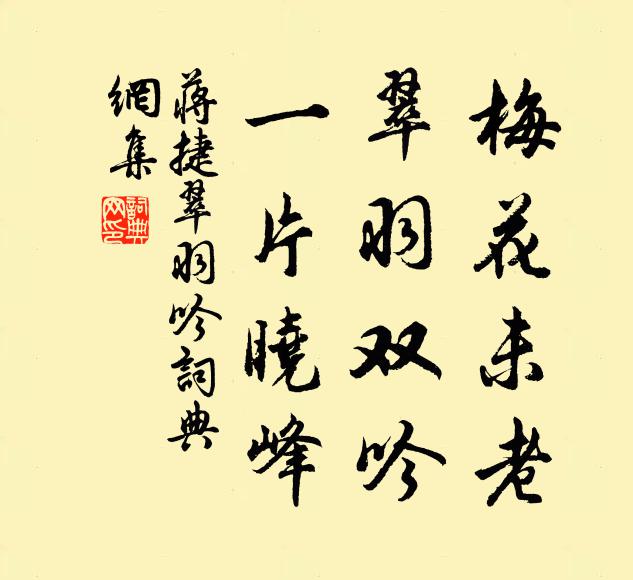 梅花未老
翠羽双吟
一片曉峰
蔣捷翠羽吟詞典
網集
詞典
网印